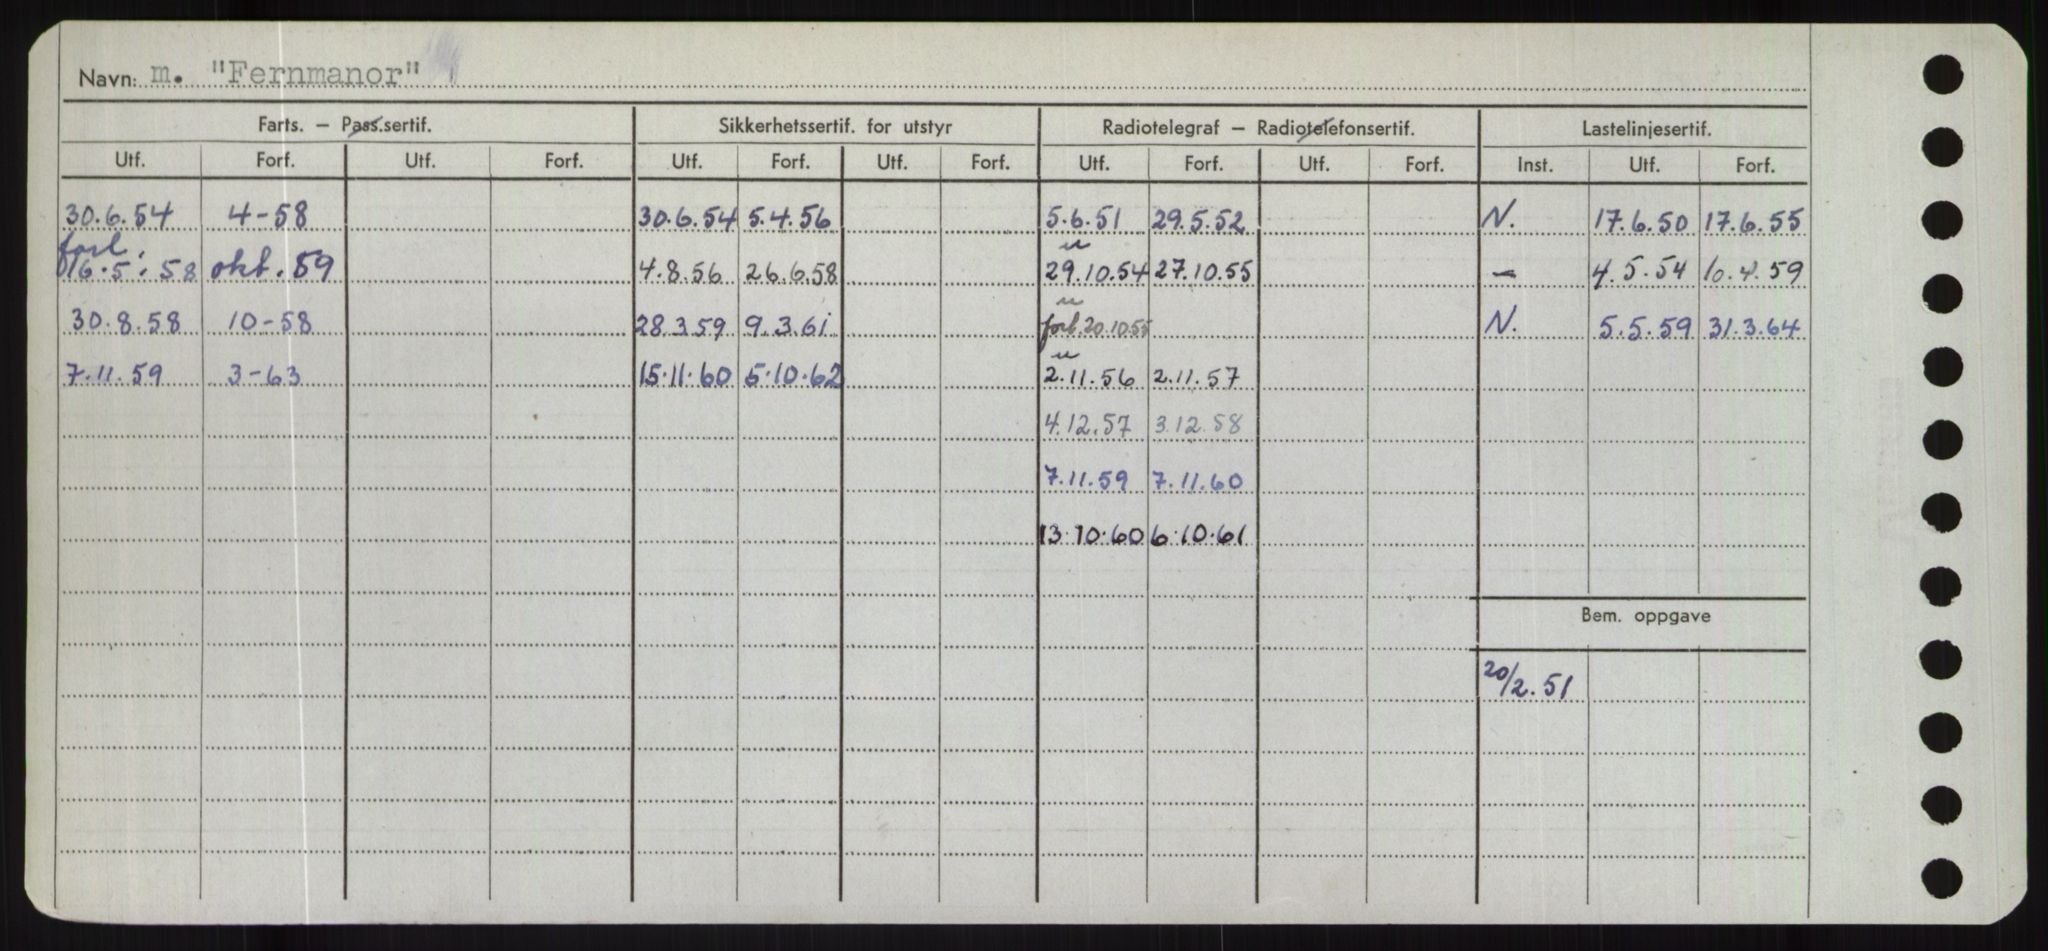 Navn: m. "Fernmanor"
Farts. – Pass.sertif. Sikkerhetssertif. for utstyr Radiotelegraf – Radiotelefonsertif. Lastelinjesertif.
Utf. Forf. Utf. Forf. Utf. Forf. Utf. Forf. Utf. Forf. Utf. Forf. Inst. Utf. Forf.
30.6.54 4-58 30.6.54 5.4.56 5.6.51 29.5.52 N. 17.6.50 17.6.55
forl. u
16.5.58 okt.59 4.8.56 26.6.58 29.10.54 27.10.55 – 4.5.54 10.4.59
u
30.8.58 10-58 28.3.59 9.3.61 forl. 20.10.55 N. 5.5.59 31.3.64
u
7.11.59 3-63 15.11.60 5.10.62 2.11.56 2.11.57
4.12.57 3.12.58
7.11.59 7.11.60
13.10.60 6.10.61
Bem. oppgave
20/2.51